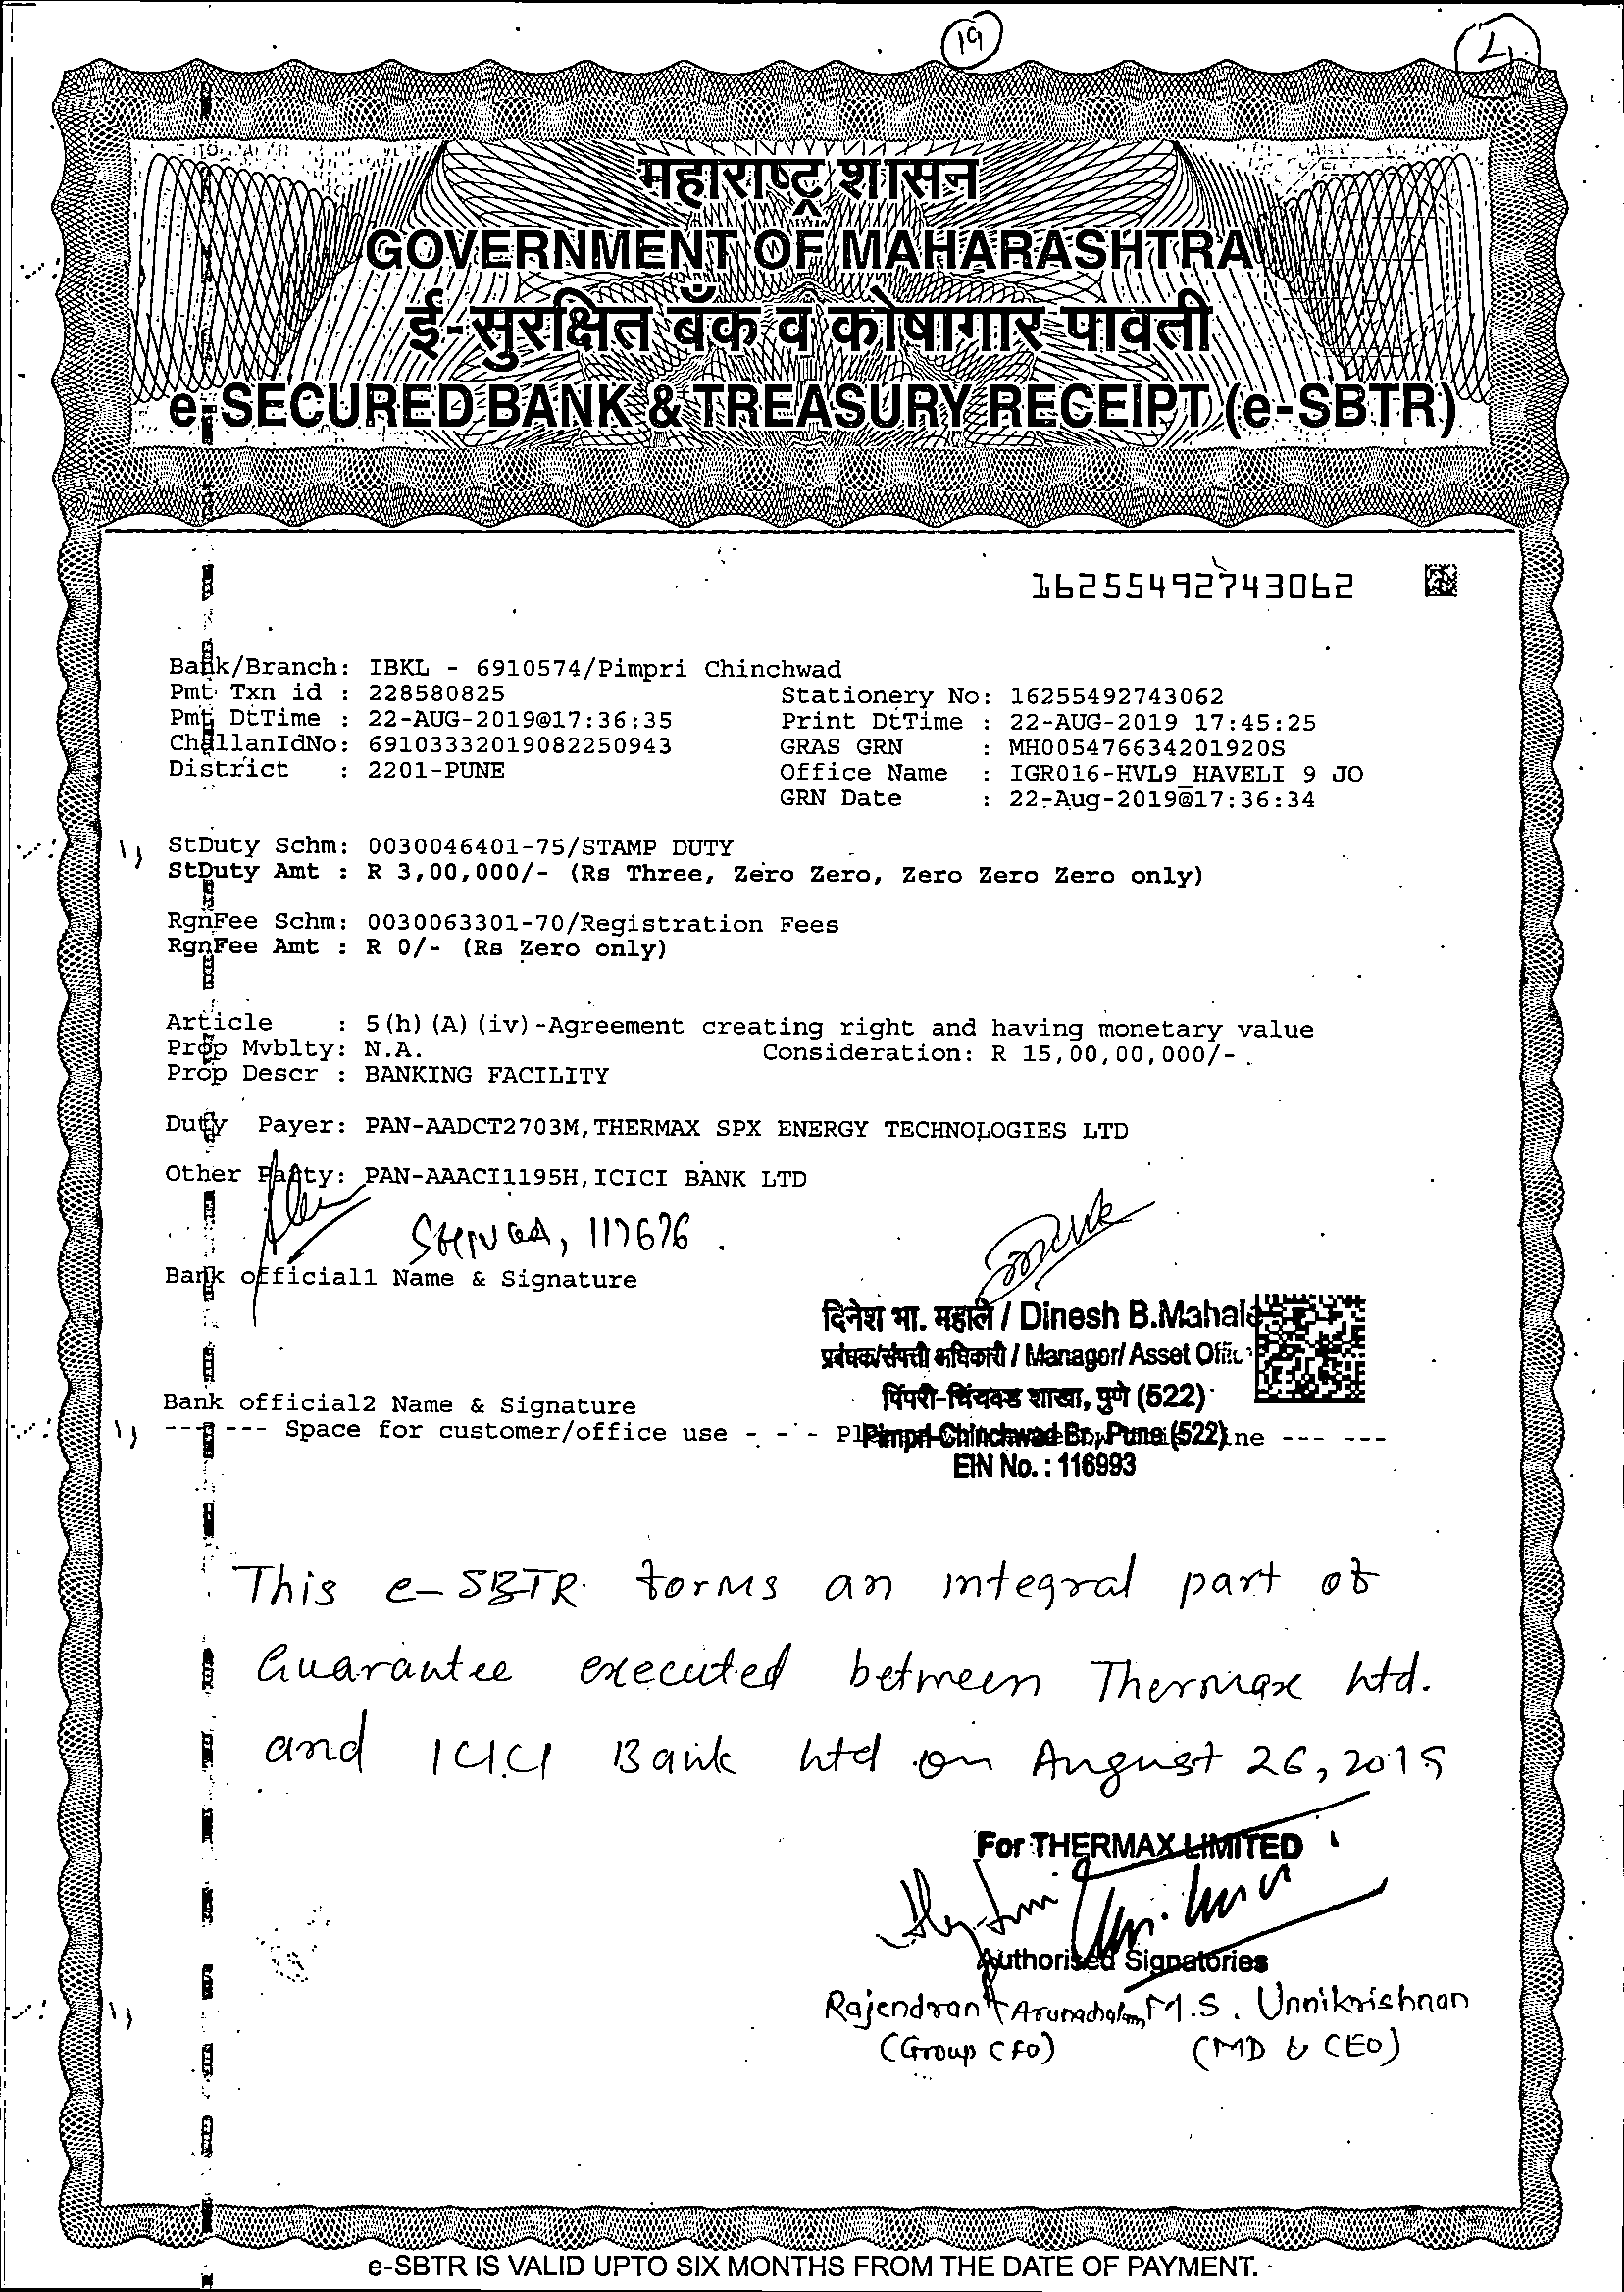 19
महाराष्ट्र शासन
GOVERNMENT OF MAHARASHTRA
ई-सुरक्षित बँक व कोषागार पावती
e-SECURED BANK & TREASURY RECEIPT (e-SBTR)
16255492743062
Bank/Branch: IBKL - 6910574/Pimpri Chinchwad
Pmt Txn id : 228580825 Stationery No: 16255492743062
Pmt DtTime : 22-AUG-2019@17:36:35 Print DtTime : 22-AUG-2019 17:45:25
ChallanIdNo: 69103332019082250943 GRAS GRN : MH005476634201920S
District : 2201-PUNE Office Name : IGR016-HVL9_HAVELI 9 JO
GRN Date : 22-Aug-2019@17:36:34
StDuty Schm: 0030046401-75/STAMP DUTY
StDuty Amt : R 3,00,000/- (Rs Three, Zero Zero, Zero Zero Zero only)
RgnFee Schm: 0030063301-70/Registration Fees
RgnFee Amt : R 0/- (Rs Zero only)
Article : 5(h)(A)(iv)-Agreement creating right and having monetary value
Prop Mvblty: N.A. Consideration: R 15,00,00,000/-
Prop Descr : BANKING FACILITY
Duty Payer: PAN-AADCT2703M,THERMAX SPX ENERGY TECHNOLOGIES LTD
Other Party: PAN-AAACI1195H,ICICI BANK LTD
117676
Bank official1 Name & Signature
दिनेश भा. महाले / Dinesh B.Mahale
प्रबंधक/संपत्ती अधिकारी / Manager/ Asset Offic
पिंपरी-चिंचवड शाखा, पुणे (522)
Bank official2 Name & Signature
--- --- Space for customer/office use - - - Pimpri-Chinchwad Br, Pune (522) --- ---
EIN No. : 116993
This e-SBTR forms an integral part of
Guarantee executed between Thermax Ltd.
and ICICI Bank Ltd on August 26, 2019
For THERMAX LIMITED
Authorised Signatories
Rajendran Arunachalam M.S. Unnikrishnan
(Group CFO) (MD & CEO)
e-SBTR IS VALID UPTO SIX MONTHS FROM THE DATE OF PAYMENT.